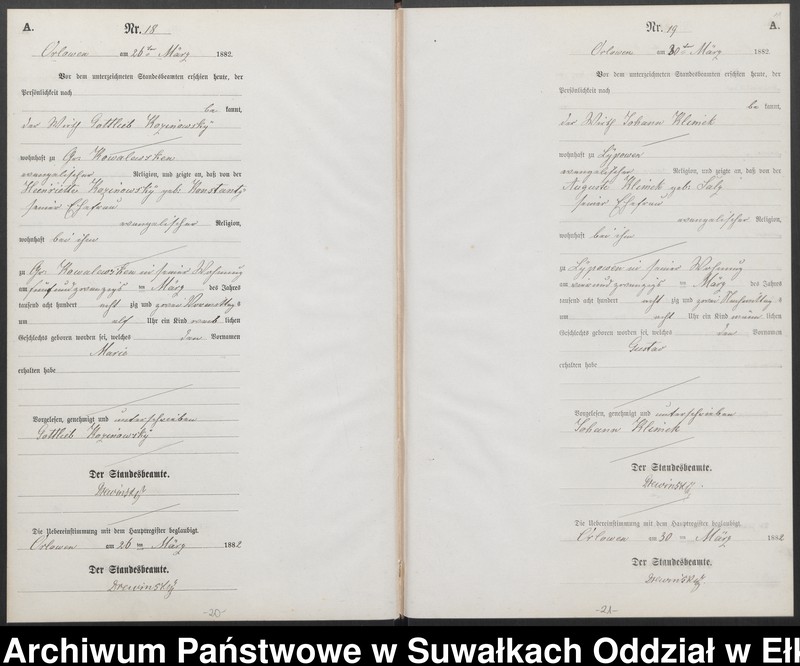 A.
Nr. 18
Orlowen am 26ten März 1882.
Vor dem unterzeichneten Standesbeamten erschien heute, der
Persönlichkeit nach
be kannt,
der Wirth Gottlieb
wohnhaft zu Gr. Kowalewsken
evangelischer Religion, und zeigte an, daß von der
Henriette geb.
seiner Ehefrau
evangelischer Religion,
wohnhaft bei ihm
zu Gr. Kowalewsken in seiner Wohnung
am fünf und zwanzigs ten März des Jahres
tausend acht hundert acht zig und zwei Vormittag s
um elf Uhr ein Kind weib lichen
Geschlechts geboren worden sei, welches den Vornamen
Marie
erhalten habe
Vorgelesen, genehmigt und unterschrieben
Gottlieb
Der Standesbeamte.
Die Uebereinstimmung mit dem Hauptregister beglaubigt.
Orlowen am 26 ten März 1882
Der Standesbeamte.
-20-
Nr. 19
A.
Orlowen am 30ten März 1882.
Vor dem unterzeichneten Standesbeamten erschien heute, der
Persönlichkeit nach
be kannt,
der Wirth Johann Klimek
wohnhaft zu Lypowen
evangelischer Religion, und zeigte an, daß von der
Auguste Klimek geb.
seiner Ehefrau
evangelischer Religion,
wohnhaft bei ihm
zu Lypowen in seiner Wohnung
am und zwanzigs ten März des Jahres
tausend acht hundert acht zig und zwei Nachmittag s
um acht Uhr ein Kind männ lichen
Geschlechts geboren worden sei, welches den Vornamen
Gustav
erhalten habe
Vorgelesen, genehmigt und unterschrieben
Johann Klimek
Der Standesbeamte.
Die Uebereinstimmung mit dem Hauptregister beglaubigt.
Orlowen am 30 ten März 1882
Der Standesbeamte.
-21-
Archiwum Państwowe w Suwałkach Oddział w Eł